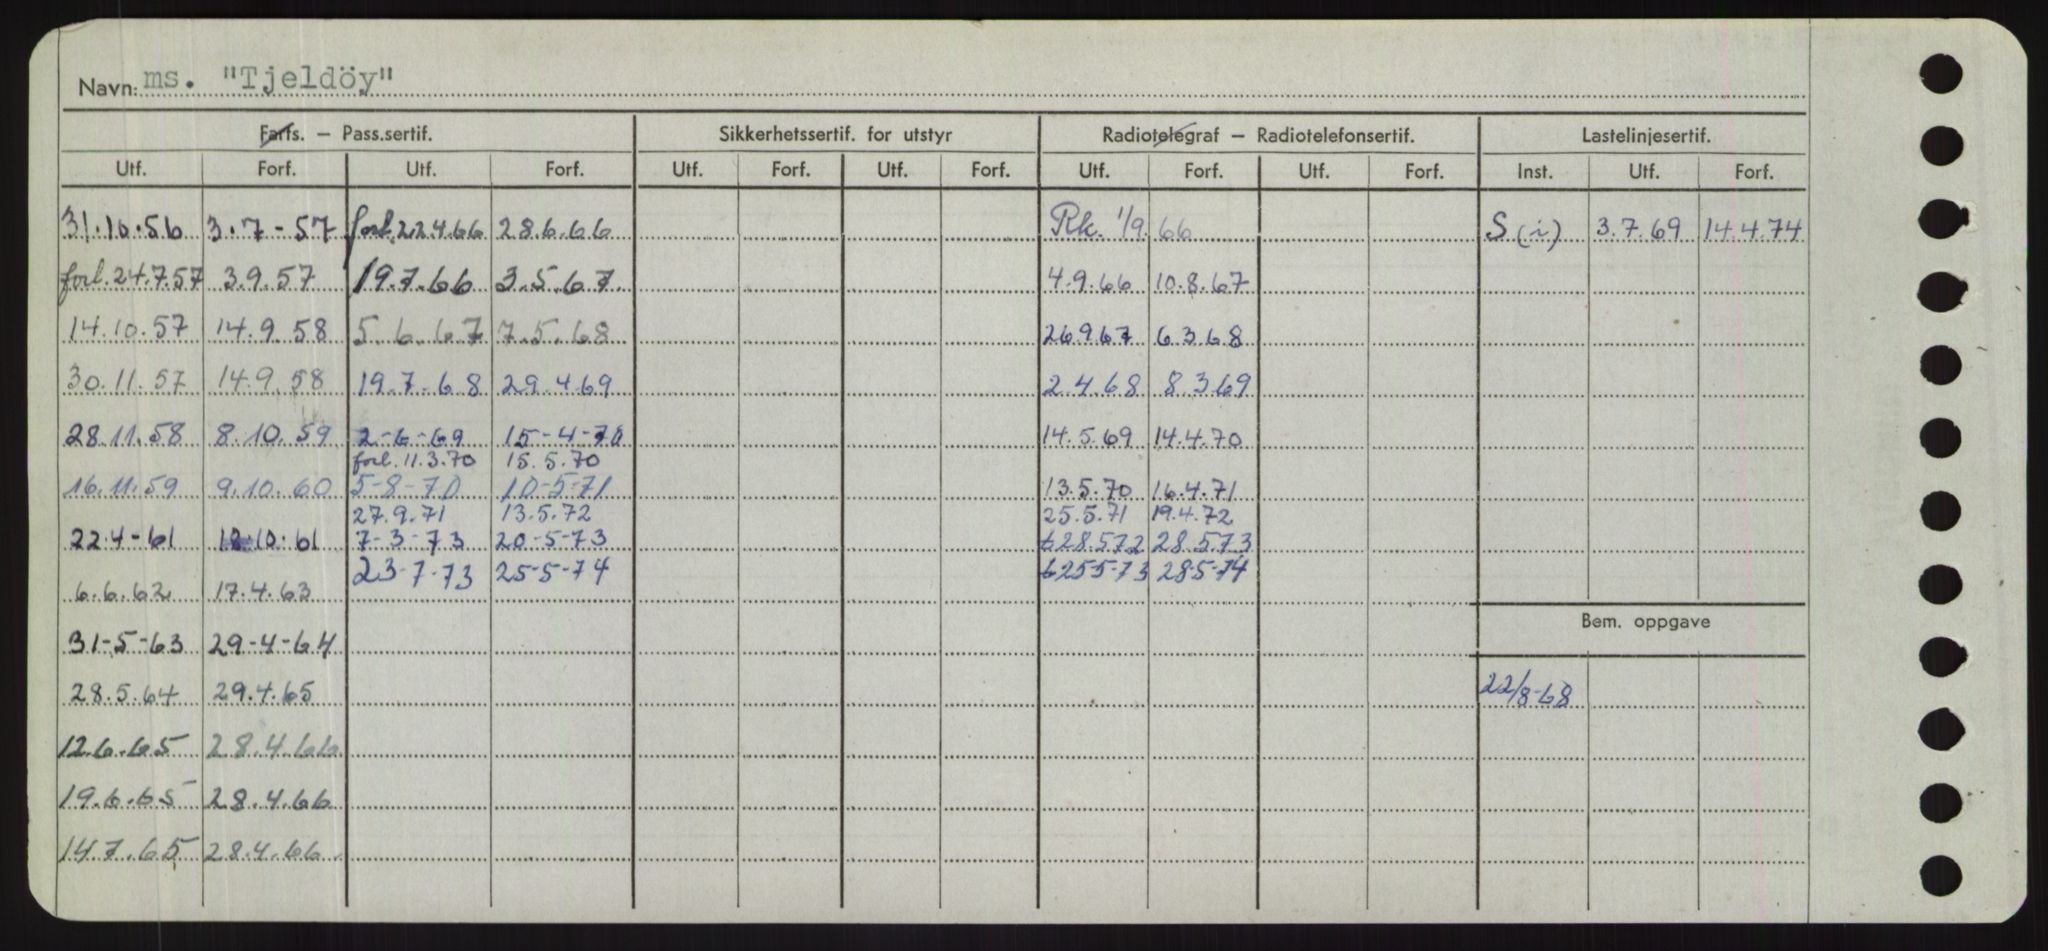 Navn: ms. "Tjeldöy"
Farts. — Pass.sertif. Sikkerhetssertif. for utstyr Radiotelegraf — Radiotelefonsertif. Lastelinjesertif.
Utf. Forf. Utf. Forf. Utf. Forf. Utf. Forf. Utf. Forf. Utf. Forf. Inst. Utf. Forf.
31.10.56 3.7-57 forl. 22.4.66 28.6.66 Rk. 1/9.66 S (i) 3.7.69 14.4.74
forl. 24.7.57 3.9.57 19.7.66 3.5.67 4.9.66 10.8.67
14.10.57 14.9.58 5.6.67 7.5.68 26.9.67 6.3.68
30.11.57 14.9.58 19.7.68 29.4.69 2.4.68 8.3.69
28.11.58 8.10.59 2-6-69 15-4-70 14.5.69 14.4.70
forl. 11.3.70 15.5.70
16.11.59 9.10.60 5-8-70 10-5-71 13.5.70 16.4.71
27.9.71 13.5.72 25.5.71 19.4.72
22.4-61 10.61 7-3-73 20-5-73 t 28.5.72 28.5.73
23-7-73 25-5-74 t 25-5-73 28-5-74
6.6.62 17.4.63
Bem. oppgave
31-5-63 29-4-64
28.5.64 29.4.65 22/8-68
12.6.65 28.4.66
19.6.65 28.4.66
14.7.65 28.4.66